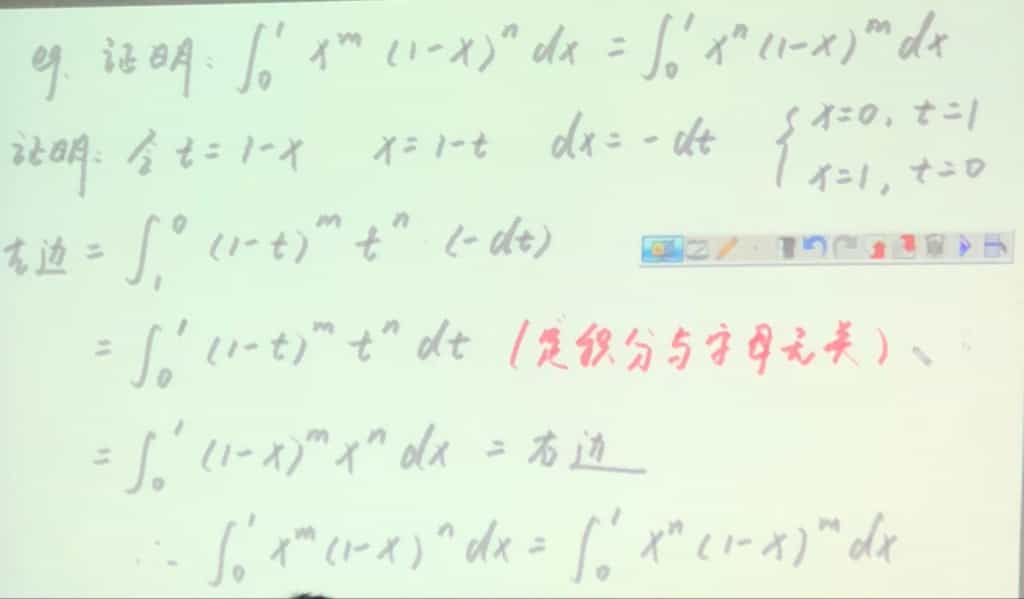 例. 证明: ∫₀¹ xᵐ (1-x)ⁿ dx = ∫₀¹ xⁿ (1-x)ᵐ dx
证明: 令 t = 1-x x = 1-t dx = -dt { x=0, t=1
x=1, t=0
左边 = ∫₁⁰ (1-t)ᵐ tⁿ · (-dt)
= ∫₀¹ (1-t)ᵐ tⁿ dt (定积分与字母无关)
= ∫₀¹ (1-x)ᵐ xⁿ dx = 右边
∴ ∫₀¹ xᵐ (1-x)ⁿ dx = ∫₀¹ xⁿ (1-x)ᵐ dx